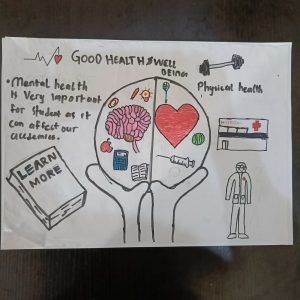 GOOD HEALTH & WELL
BEING
• Mental health
is Very important
for student as it
can affect our
academics.
Physical health
LEARN
MORE